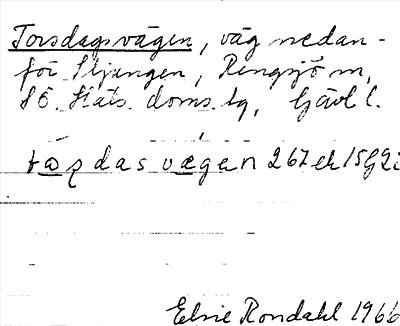 Torsdagsvägen, väg nedan-
för Stjungen, Rengsjö sn,
SÖ. Häls. doms. tg, Gävl l.
tɷʂdasvægen 267 ek 15G2i
Elsie Rondahl 1966